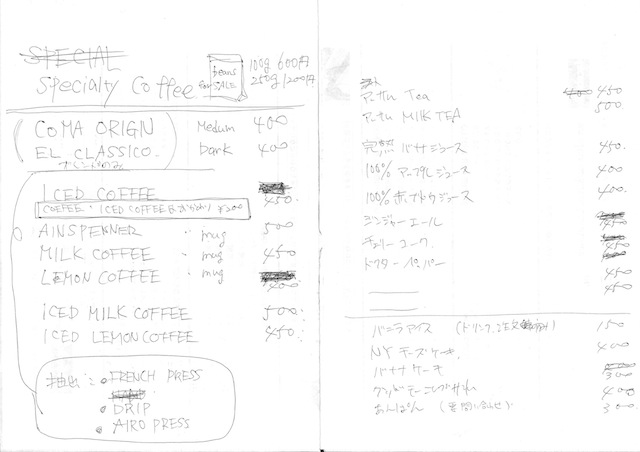 SPECIAL
Specialty Coffee
beans
for SALE
100g 600円
250g 1200円
COMA ORIGN Medum 400
EL CLASSICO. Dark 400
ICED COFFEE 450.
COFFEE・ICED COFFEEおかわり ¥200
AINSPENNER mug 500
MILK COFFEE mug 450
LEMON COFFEE mug 400
ICED MILK COFFEE 500
ICED LEMON COFFEE 450
FRENCH PRESS
DRIP
AIRO PRESS
アッサム Tea 450
アッサム MILK TEA 500
完熟 バナナジュース 450.
100% アップルジュース 400
100% 赤ブドウジュース 400.
ジンジャーエール 450
チェリー コーク 450
ドクターペッパー 450
450
バニラアイス (ドリンクご注文 150
NY チーズケーキ. 400
バナナ ケーキ 300
400
あんぱん (要問い合わせ) 300